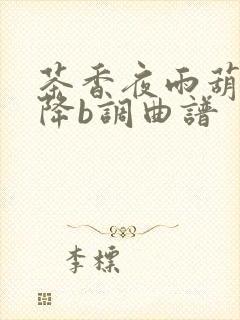 茶香夜雨葫
降b調曲譜
李標